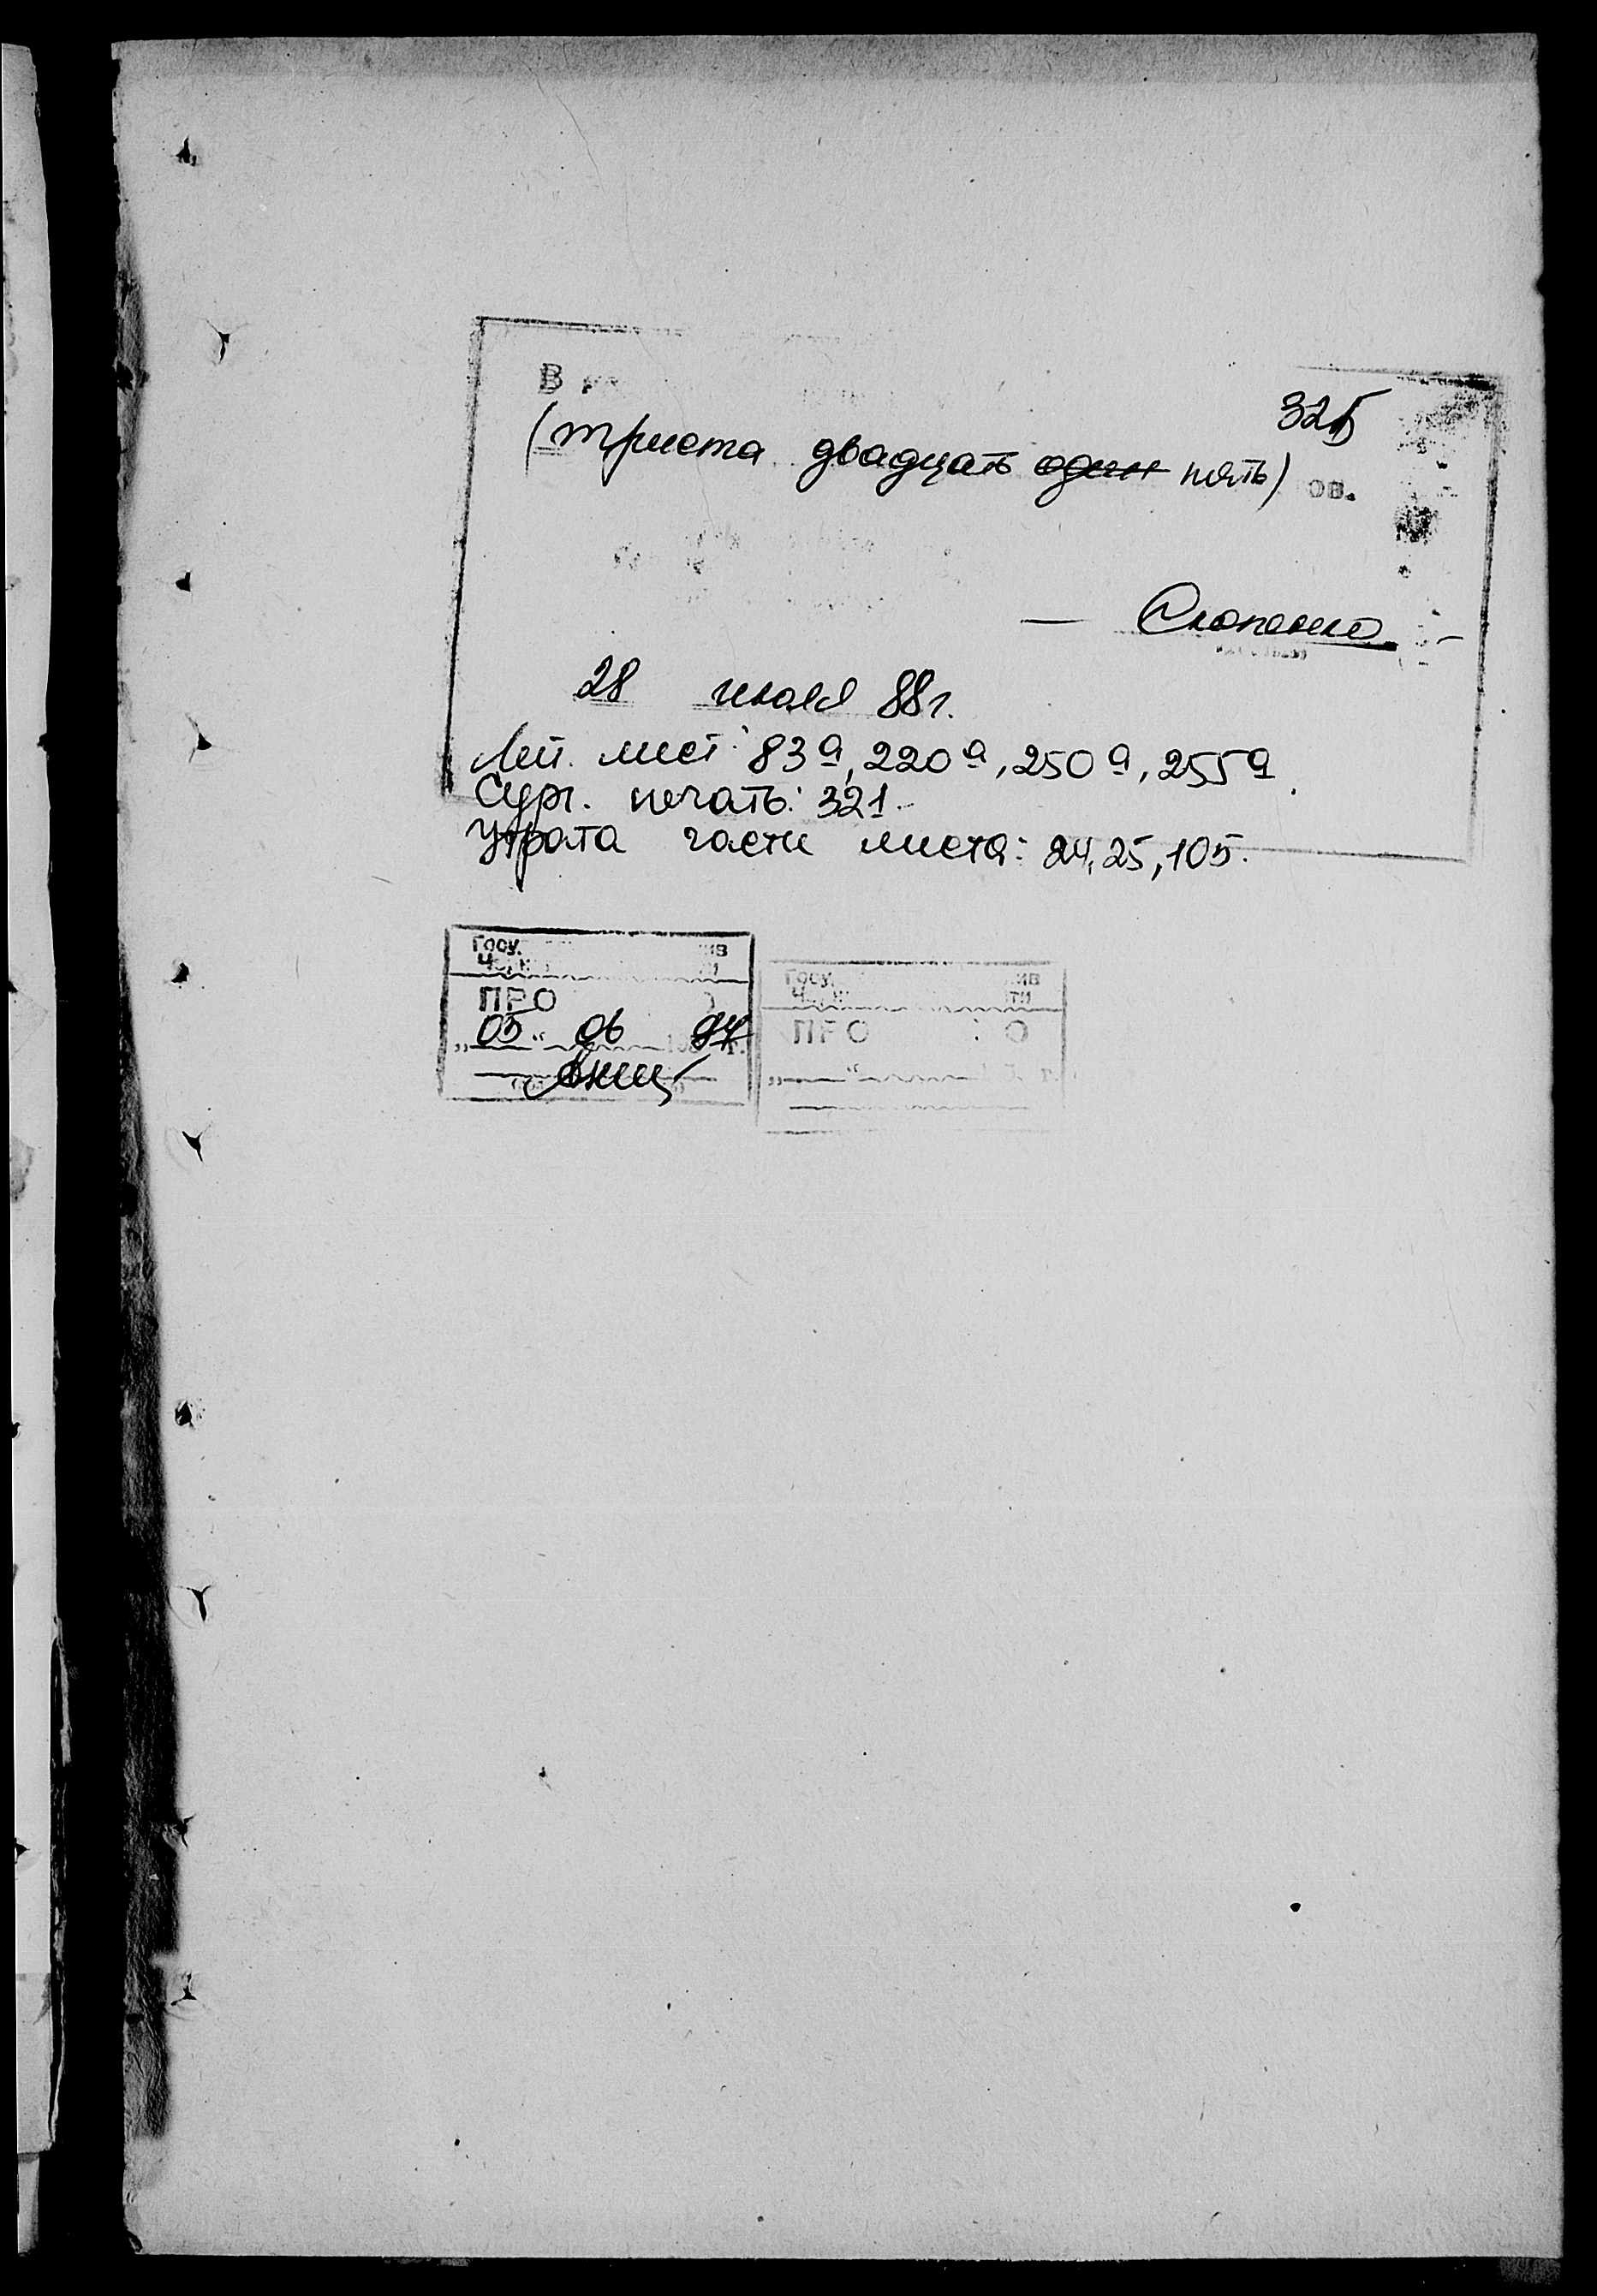 В
325
(триста двадцать один пять) ов.
28 июля 88г.
Лит. лист: 83а, 220а, 250а, 255а.
Сург. печать: 321.
Утрата части листа: 24, 25, 105.
Госу ив
ПРО
„05“ 06 94
Госу ив
Ч ти
ПРО О